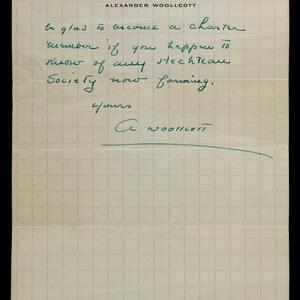 ALEXANDER WOOLLCOTT
be glad to become a charter
member if you happen to
know of any Hechtean
Society now forming.
Yours
A. Woollcott